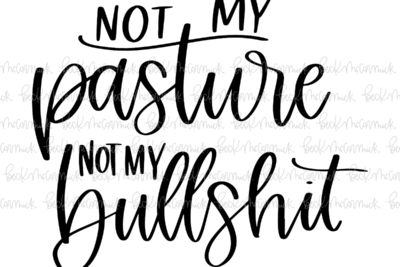 NOT MY
pasture
NOT MY
bullshit